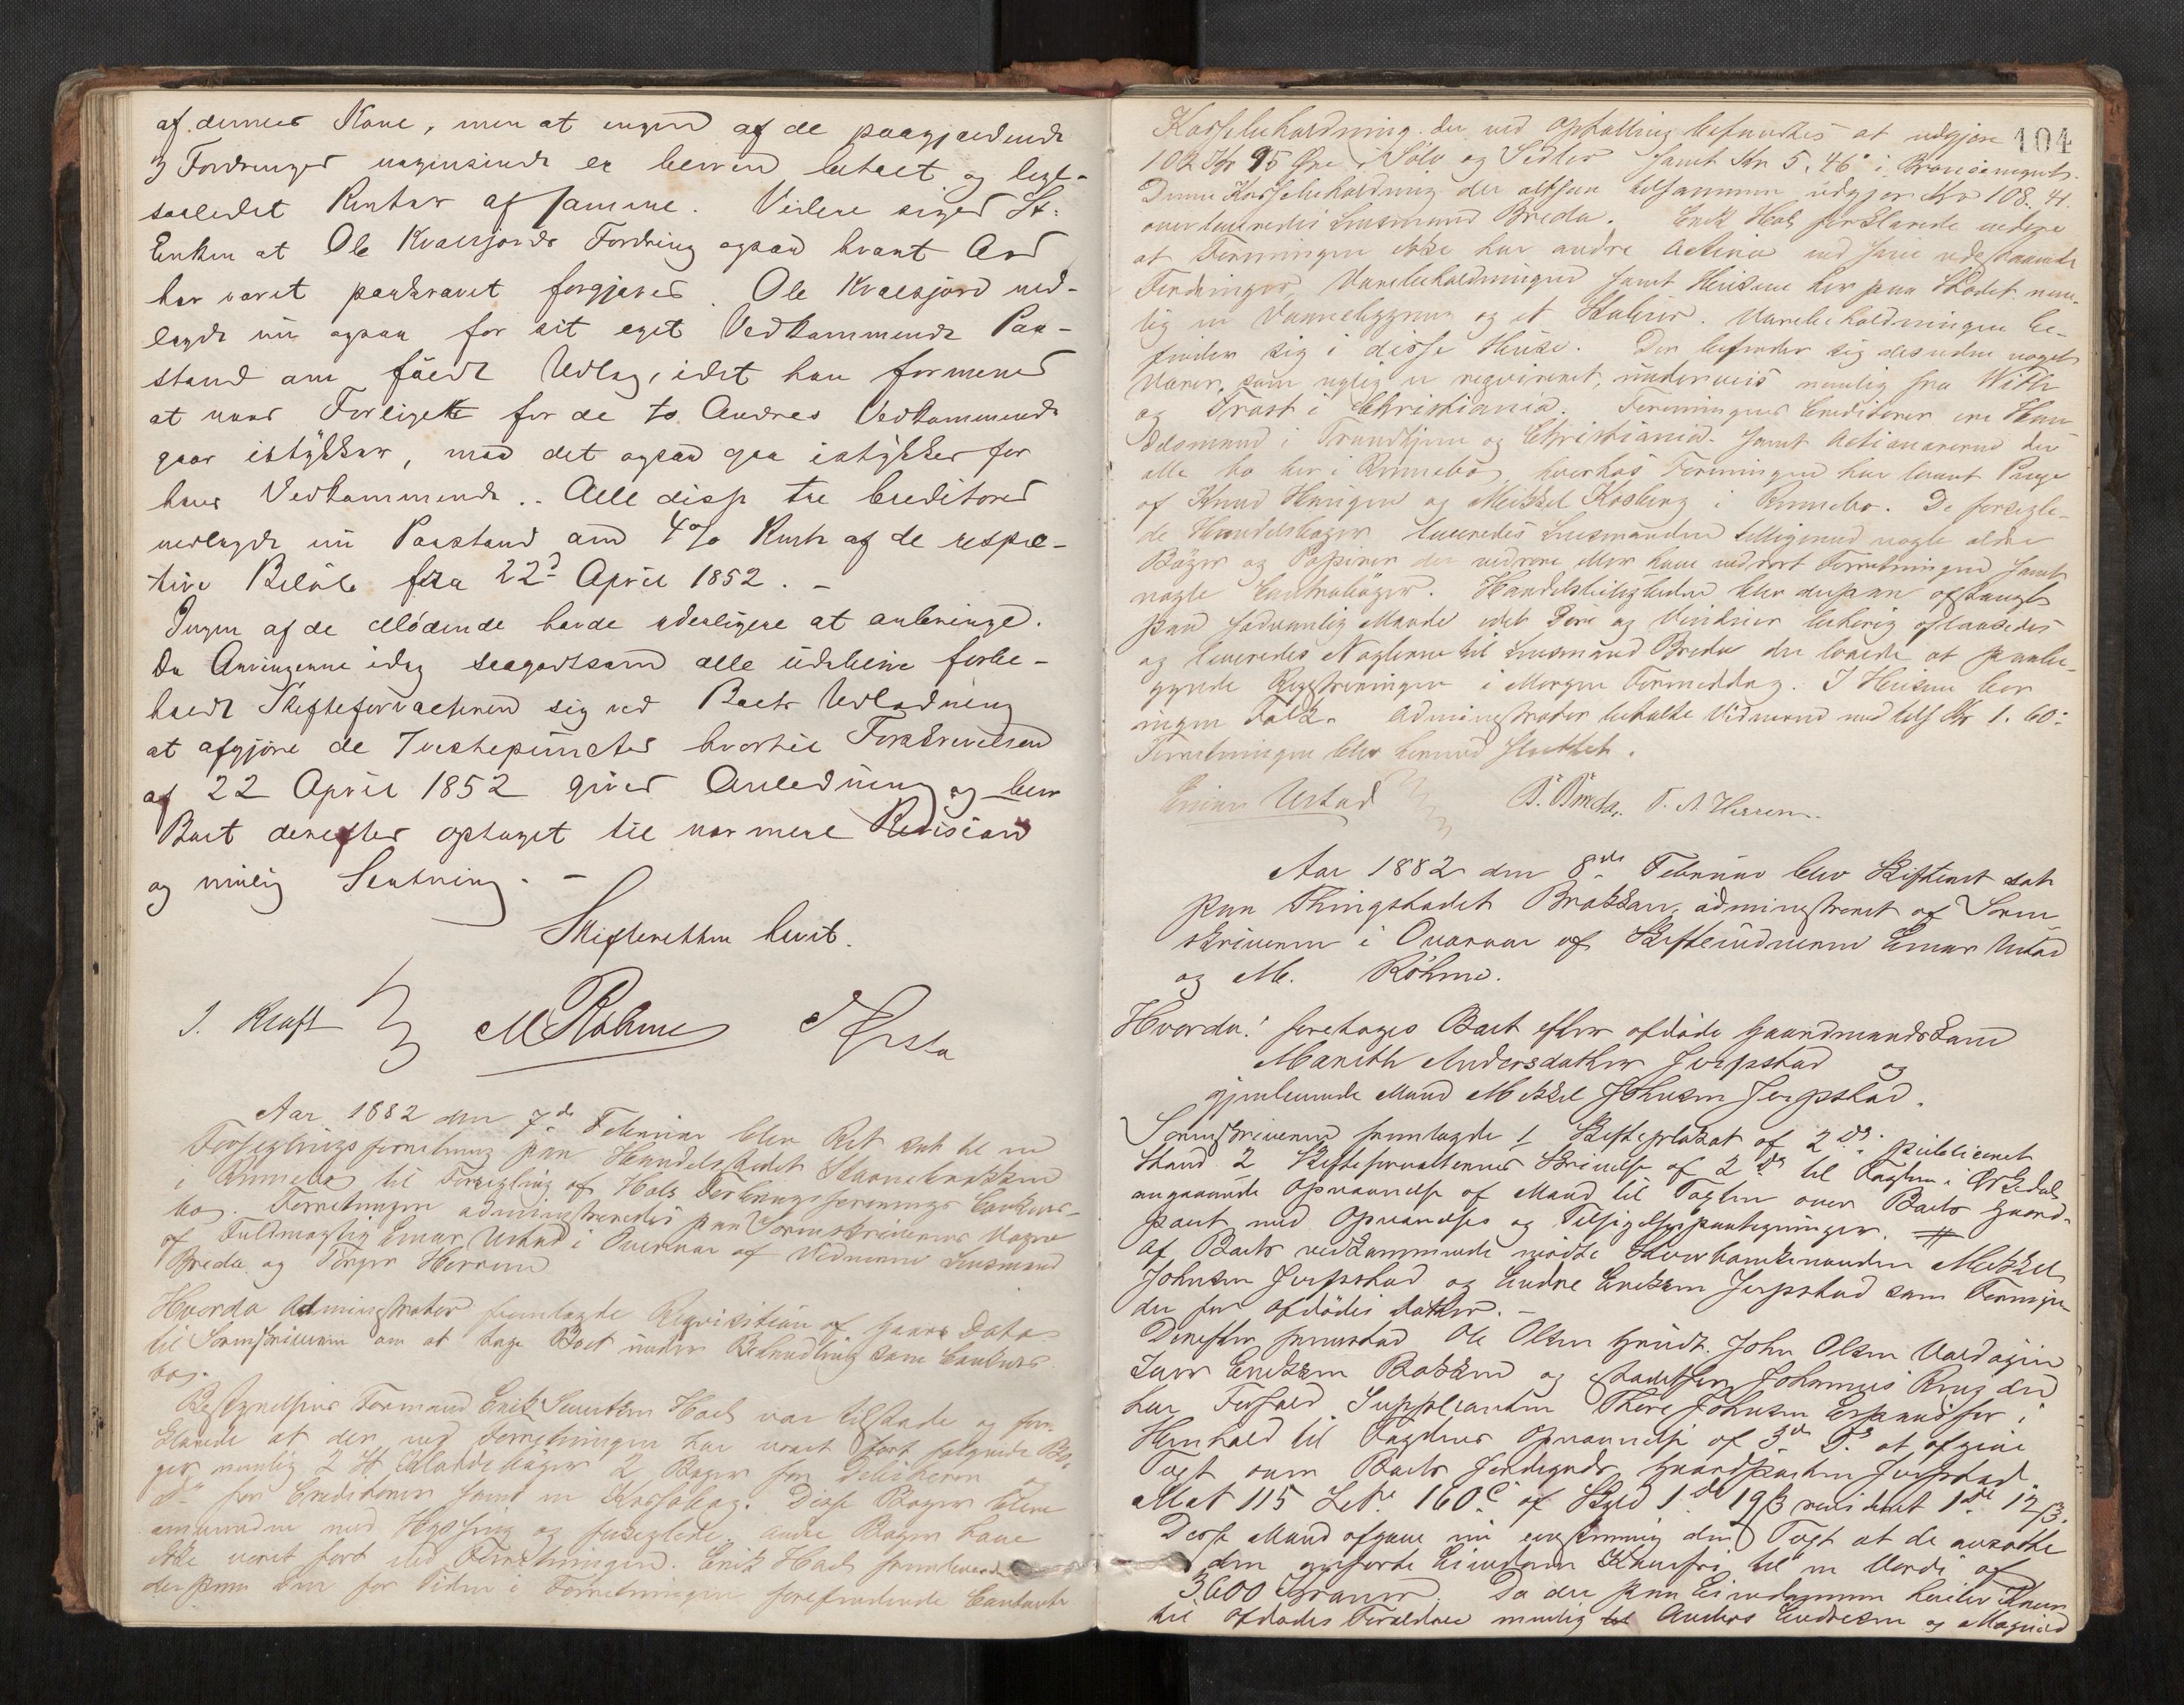 af dennes Kone, men at ingen af de paagjældende
3 Fordringer nogensinde er bleven betalt og lige-
saalidt Renter af samme. Videre siger St:
Enken at Ole Kvalsjords Fordring ogsaa hvert Aar
har været paakrævet forgjæves. Ole Kvalsjord ned-
lagde nu ogsaa for sit eget Vedkommende Paa-
stand om fuldt Udlæg, idet han formener
at naar Forliget for de to Andres Vedkommende
gaar istykker, maa det ogsaa gaa istykker for
hans Vedkommende. Alle disse tre Creditorer
nedlagde nu Paastand om 4% Rente af de respec-
tive Beløb fra 22d April 1852. -
Ingen af de Mødende havde yderligere at anbringe.
Da Arvingerne idag saagodtsom alle udebleve forbe-
holdt Skifteforvalteren sig ved Boets Udlodning
at afgjøre de Tvistepuncter hvortil Forskrivelsen
af 22 April 1852 giver Anledning og blev
Boet derefter optaget til nærmere Revision
og mulig Slutning. -
Skifteretten hævet.
J. Kraft M Rohme
Aar 1882 den 7de Februar blev Ret sat til en
Forseglingsforretning paa Handelsstedet Stavnebrekken
i Rennebo til Forsegling af Hols Forbrugsforenings Concurs-
bo. Forretningen administreredes paa Sorenskriverens Vegne
af Fuldmægtig Einar Ustad i Overvær af Vidnerne Lensmand
Breda og Torger Herrem
Hvorda Administrator fremlagde Reqvisition af Gaars Dato
til Sorenskriveren om at tage Boet under Behandling som Concurs-
bo.
Bestyrelsens Formand Erik Hoel var tilstede og for-
klarede at der ved Forretningen har været ført følgende Bø-
ger nemlig 2 St Kladdebøger 2 Bøger for Debitorer og
do for Creditorer samt en Kassabog. Disse Bøger bleve
omvundne med Hyssing og forseglede. andre Bøger have
ikke været ført ved Forretningen. Erik Hoel fremleverede
derpaa den for Tiden i Forretningen forefindende Contante
104
Kassebeholdning der ved Optælling befandtes at udgjøre
102 Kr 95 Øre i Sølv og Sedler samt Kr 5.46 i
Denne Kassebeholdning der altsaa tilsammen udgjør Kr 108.41.
overleveredes Lensmand Breda. Erik Hoel forklarede videre
at Foreningen ikke har andre Activa end sine udestaaende
Fordringer, Varebeholdningen samt Husene her paa Stedet nem-
lig en Vaaningsbygning og et Stabur. Varebeholdningen be-
finder sig i disse Huse. Der befinder sig desuden nogle
Varer, som nylig er reqvireret, underveis nemlig fra
og i Christiania. Foreningens Creditorer ere Han-
delsmænd i Trondhjem og Christiania samt Actionærerne der
alle bo her i Rennebo, hvorhos Foreningen har laant Penge
af Knud og Mikkel i Rennebo. De forsegle-
de Handelsbøger leveredes Lensmanden tilligemed nogle ældre
Bøger og Papirer der vedrøre eller have vedrørt Forretningen samt
nogle Contrabøger. Handelsleiligheden blev derpaa aflaaset
paa sædvanlig Maade idet Døre og Vinduer behørig aflaasedes
og leveredes Nøglerne til Lensmand Breda der lovede at paabe-
gynde Registreringen i Morgen Formiddag. I Husene bor
ingen Folk. Administrator betalte Vidnerne med tils Kr 1.60:
Forretningen blev hermed sluttet.
Einar Ustad B. Breda. T. A. Herrem.
Aar 1882 den 8de Februar blev Skifteret sat
paa Thingstedet Brækken, administreret af Soren-
skriveren i Overvær af Skiftevidnerne Einar Ustad
og M. Röhme.
Hvorda! foretoges Boet efter afdøde Gaardmandskone
Mareth Andersdatter Jerpstad og
gjenlevende Mand Mikkel Johnsen Jerpstad.
Sorenskriveren fremlagde 1 Skifteplakat af 2 Ds. publiceret
2 Skifteforvalterens Skrivelse af 2 Ds til Fogden i Ørkedal
angaaende Opnævnelse af Mænd til Taxten over Boets Gaard-
part med Opnævnelses og Tilsigelsespaategninger.
Af Boets vedkommende mødte Stervboenkemanden Mikkel
Johnsen Jerpstad og Endre Eriksen Jerpstad som Formyn-
der for afdødes datter. -
Derefter fremstod Ole Olsen Grindt. John Olsen
Eriksen Bakken og istedetfor Johannes der
har Forfald Suppleanten Thore Johnsen i
Henhold til Fogdens Opnævnelse af 3de Ds at afgive
Taxt over Boets Jordegods Gaardparten Jerpstad
Mat 115 160 af Skyld 1 19 ß revideret 1 12 ß.
Disse Mænd afgave nu eenstemmig den Taxt at de ansatte
den anførte Eiendom til en Værdi af
3600 Kroner. Da der paa Eiendommen hviler Kaar
til afdødes Forældre nemlig til Anders Endresen og